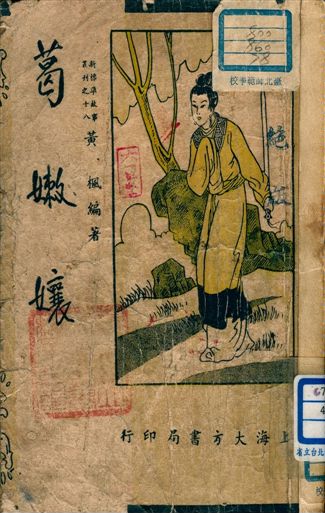 葛嫩孃
新標準故事
叢刊之十八
黃楓編著
上海大方書局印行
省立台北
67
4
校